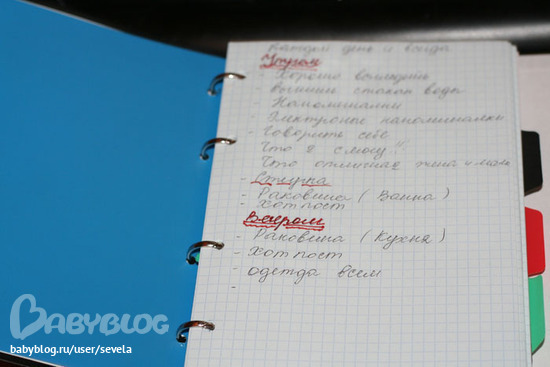 каждый день и всегда
Утром
- Хорошо выглядеть
- выпить стакан воды
- Напоминалки
- Электронные напоминалки
- Говорить себе
Что я смогу"
Что отличная жена и мама
- Стирка
- Раковина (Ванна)
- хотпост
Вечером
- Раковина (Кухня)
- хотпост
- одежда всем
-
BABYBLOG
babyblog.ru/user/sevela